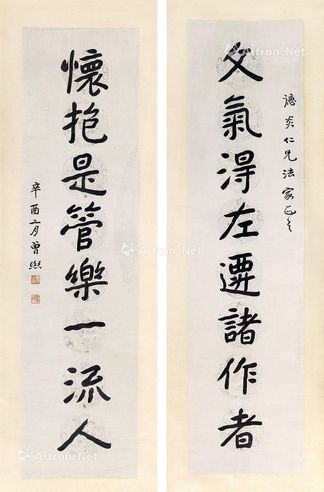 德炎仁兄法家正之
文氣得左遷諸作者
懷抱是管樂一流人
辛酉二月曾熙
Artron.Net
Artron.Net
Artron.Net
Artron.Net